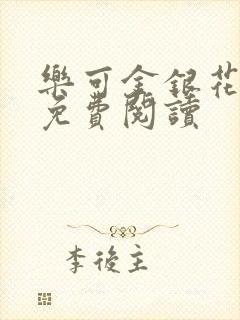 樂可金銀花
免費閱讀
李後主